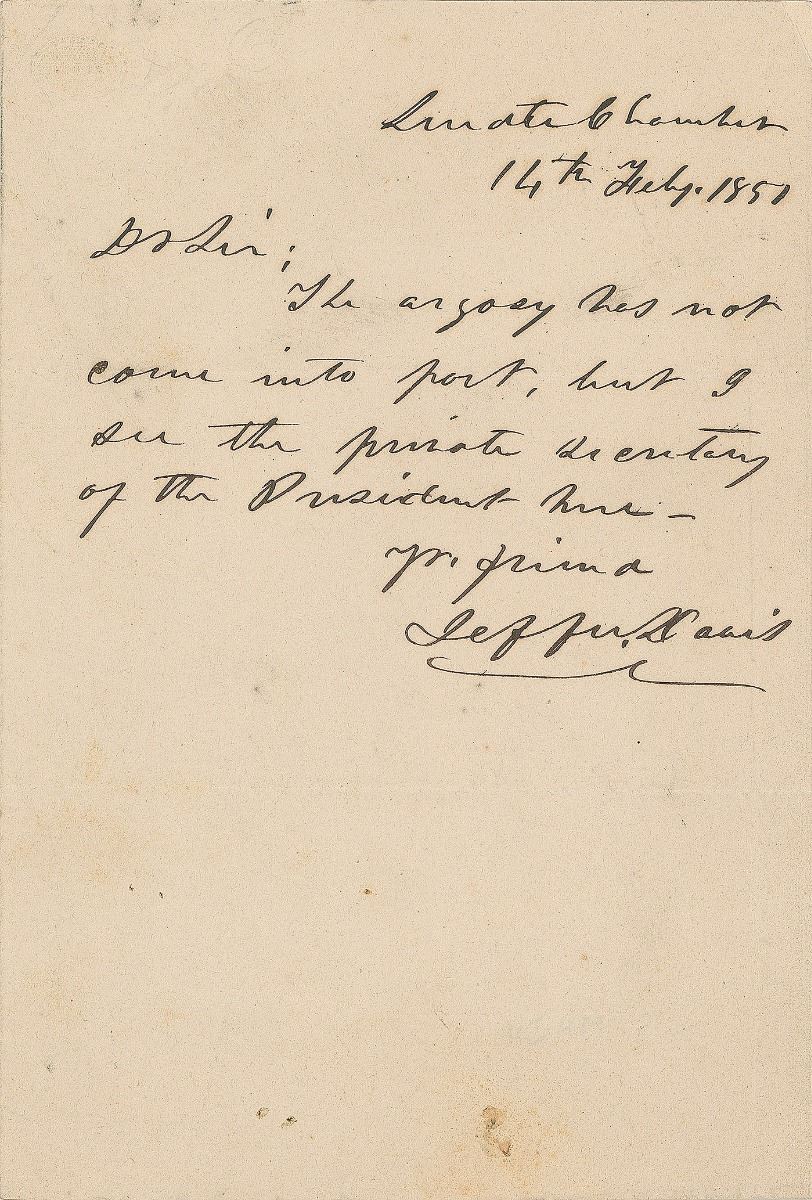 Senate Chamber
14th Feby. 1851
Dr Sir;
The argosy has not
come into port, but I
see the private secretary
of the President here –
yr. friend
Jeffn. Davis